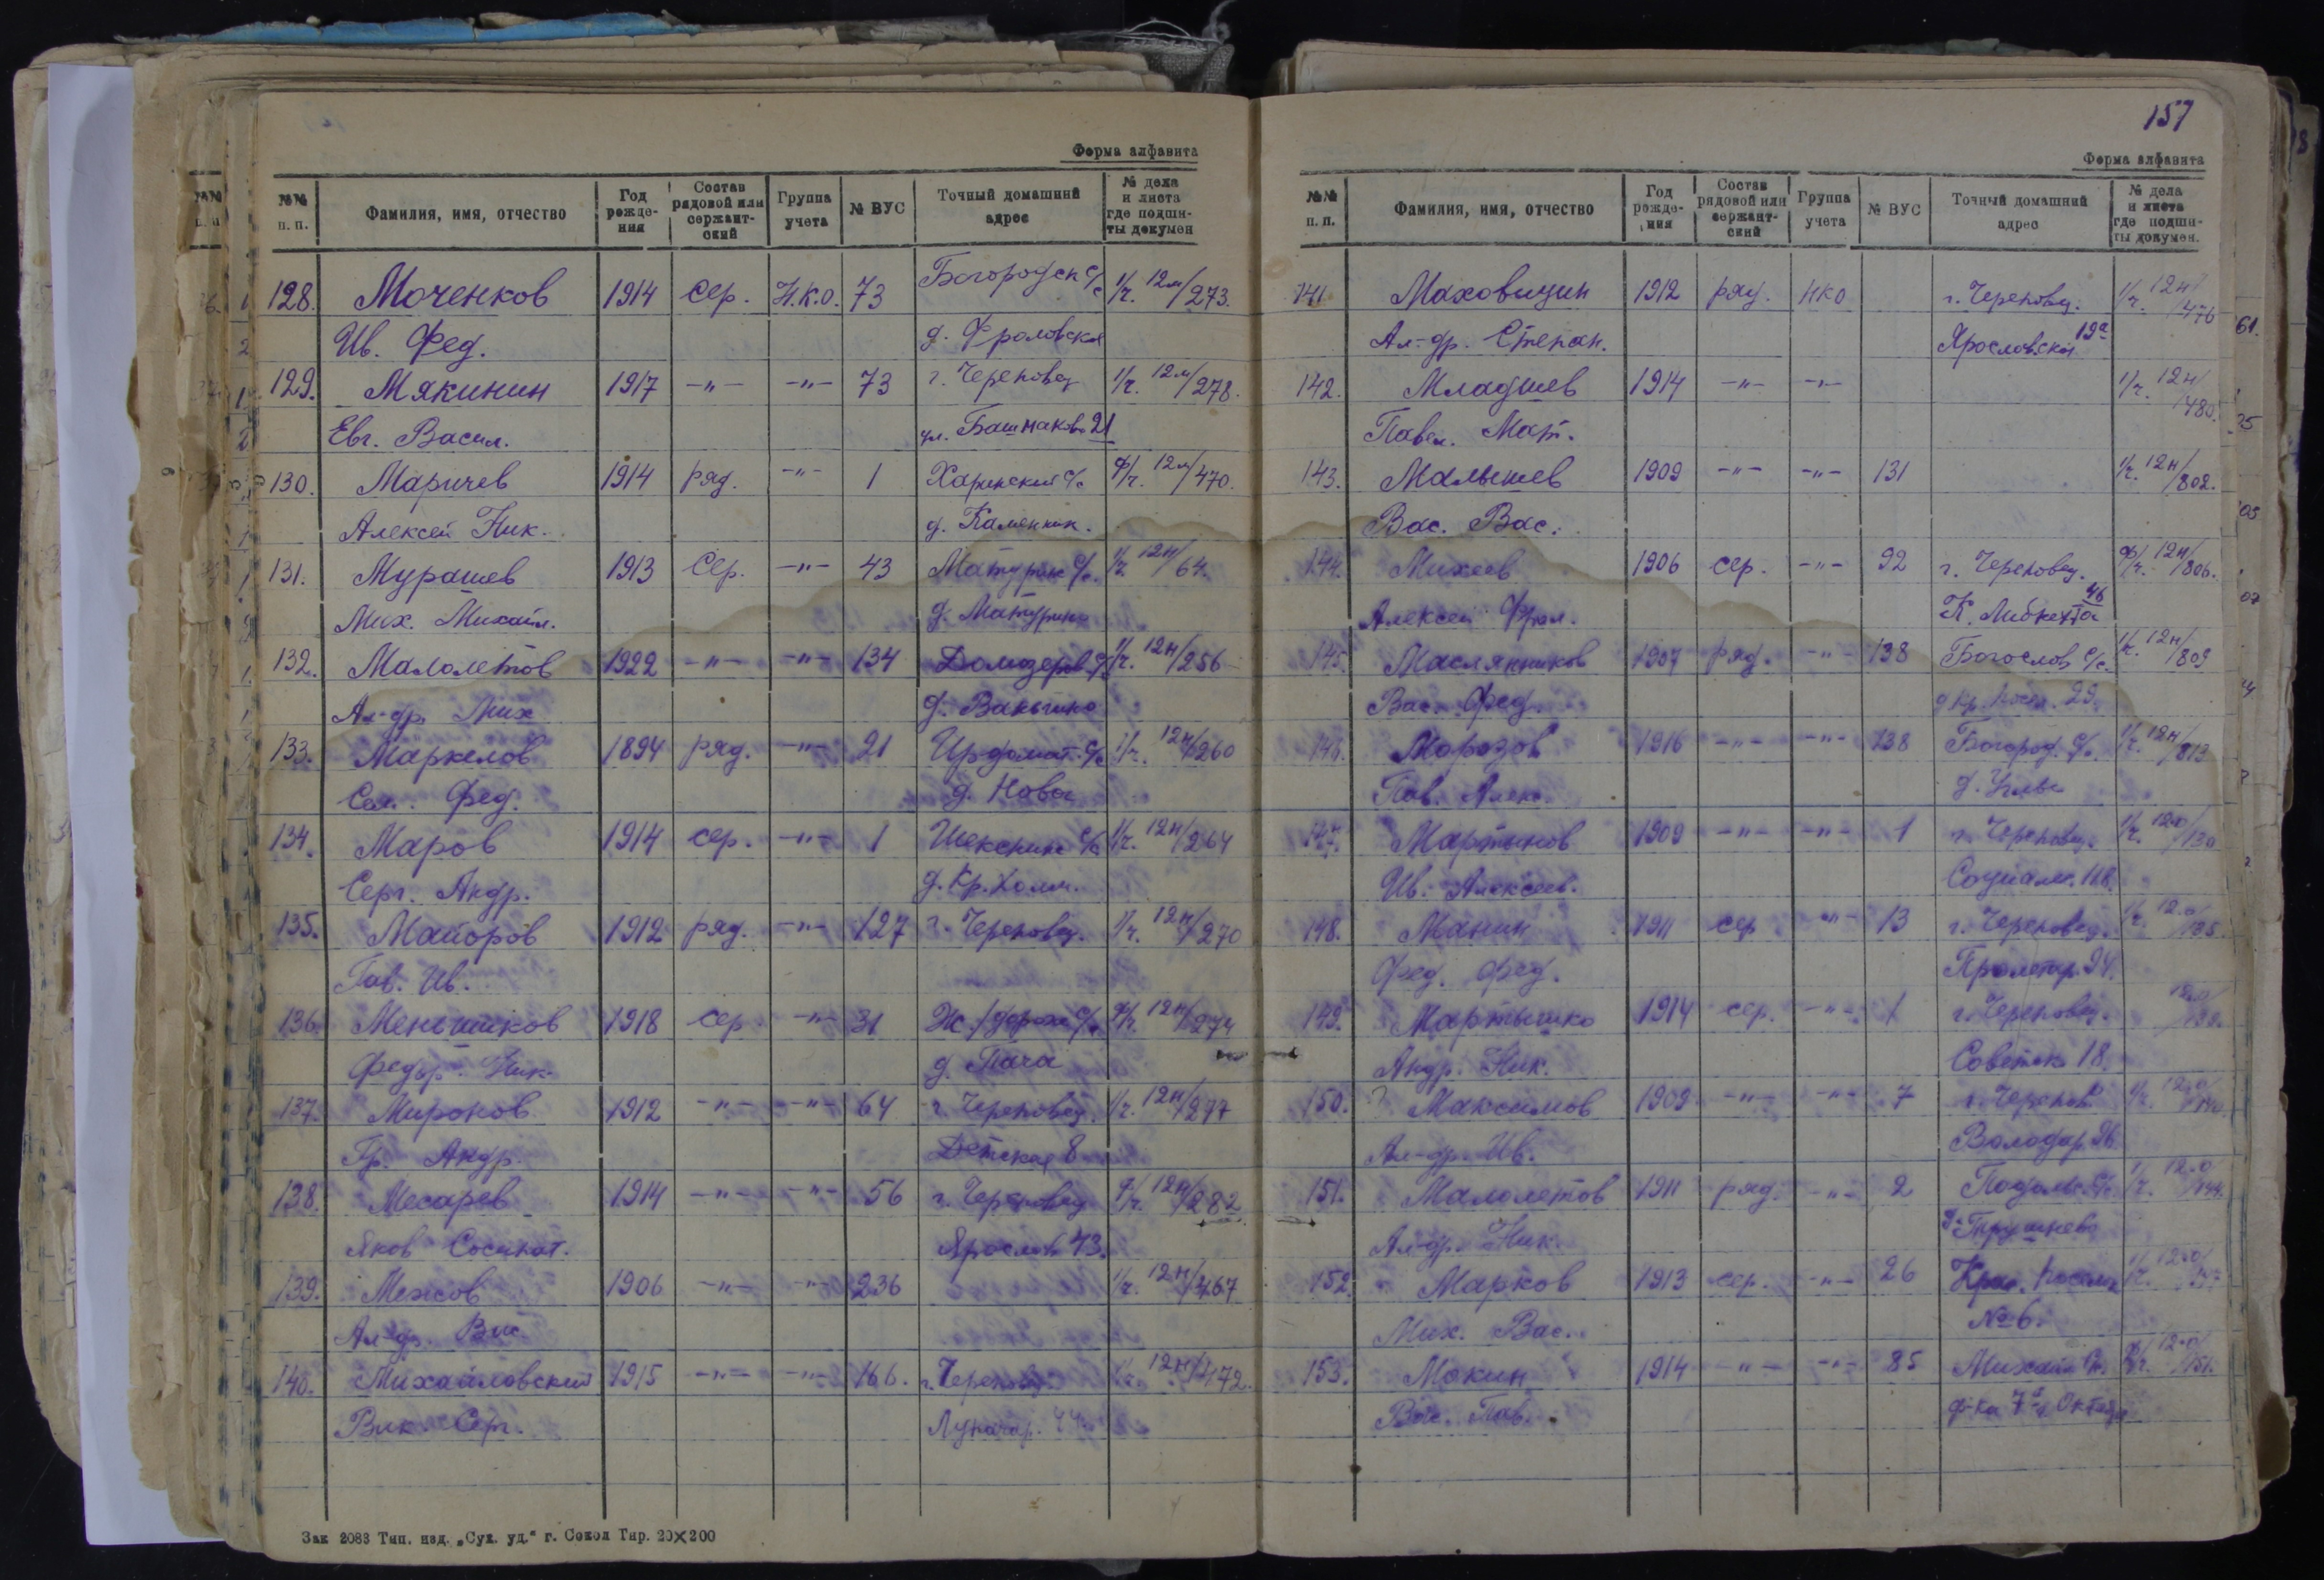 Форма алфавита
№№ п. п. | Фамилия, имя, отчество | Год рожде- ния | Состав рядовой или сержант- ский | Группа учета | № ВУС | Точный домашний адрес | № дела и листа где подши- ты докумен
128. Моченков 1914 сер. Н.К.О. 73 Богородск с/с 1/г. 12м/273.
Ив. Фед. д. Фроловская
129. Мякинин 1917 -"- -"- 73 г. Череповец 1/г. 12м/278.
Евг. Васил. ул. Башмаково 21
130. Маричев 1914 ряд. -"- 1 Харинский с/с ф/г. 12м/470.
Алексей Ник. д. Каменник.
131. Мурашев 1913 Сер. -"- 43 Матурин с/с. 1/г. 12н/64.
Мих. Михайл. д. Матурино
132. Малолетов 1922 -"- -"- 134 Домозеров с/с 1/г. 12н/256
Ал-др. Мих д.
133. Маркелов 1894 ряд. -"- 21 Ирдомат. с/с 1/г. 12н/260
Сем. Фед. д. Новая
134. Маров 1914 сер. -"- 1 Шекснин с/с 1/г. 12н/264
Серг. Андр. д. Кр. Холм.
135. Майоров 1912 ряд. -"- 127 г. Череповец. 1/г. 12н/270
Пав. Ив.
136. Меньшиков 1918 сер. -"- 31 Ж/дорож с/с ф/г. 12н/274
Федор. Ник. д. Пача
137. Миронов 1912 -"- -"- 64 г. Череповец. 1/г. 12н/277
Гр. Андр. Детская 8
138. Месарев 1914 -"- -"- 56 г. Череповец ф/г. 12н/282
Яков Ярослав 43.
139. Межов 1906 -"- -"- 236 1/г. 12н/467
Ал-др. Вас.
140. Михайловский 1915 -"- -"- 166. г. Череповец 1/г. 12н/472.
Вик. Серг. Луначар.
Зак 2083 Тип. изд. „Сух. уд.“ г. Сокол Тир. 20×200
157
Форма алфавита
№№ п. п. | Фамилия, имя, отчество | Год рожде- ния | Состав рядовой или сержант- ский | Группа учета | № ВУС | Точный домашний адрес | № дела и листа где подши- ты докумен.
141 Маховицин 1912 ряд. НКО г. Череповец. 1/г. 12н/476
Ал-др. Степан. Ярославская 19а
142. Младшев 1914 -"- -"- 1/г. 12н/480.
Павел. Мат.
143. Малышев 1909 -"- -"- 131 1/г. 12н/802.
Вас. Вас.
144. Михеев 1906 сер. -"- 92 г. Череповец. ф/г. 12н/806.
Алексей Фрол. К. Либкнехта 46
145. Маслянников 1907 ряд. -"- 138 Богослов с/с. 1/г. 12н/809
Вас. Фед. д Кр. посел. 29.
146. Морозов 1916 -"- -"- 138 Богород. с/с. 1/г. 12н/813
Пав. Алек. д.
147. Мартынов 1909 -"- -"- 1 г. Череповец. 1/г. 12-0/130
Ив. Алексеев. Социали.
148. Манин 1911 сер -"- 13 г. Череповец. 1/г. 12-0/135
Фед. Фед. Пролетар. 24.
149. Мартышко 1914 сер. -"- 1 г. Череповец. 12-0/
Андр. Ник. Советск. 18.
150. ? Максимов 1909 -"- -"- 7 г. Черепов. 1/г. 12-0/140
Ал-др. Ив. Володар.
151. Малолетов 1911 ряд. -"- 2 1/г. 12-0/144.
Ал-др. Ник.
152. Марков 1913 сер. -"- 26 Крас. посел. 1/г. 12-0/147
Мих. Вас. №6.
153. Мокин 1914 -"- -"- 85 12-0/151.
Вас. Пав. ф-ка 7й Октяб